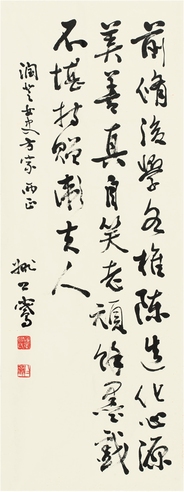 前脩後學各推陳造化心源
美善真自笑老頑餘墨戲
不堪持贈衛夫人
潤芝女史方家兩正
姚公騫